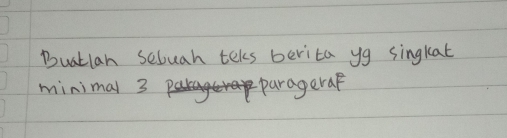 Buatlah sebuah teks berita yg singkat
minimal 3 parageraf